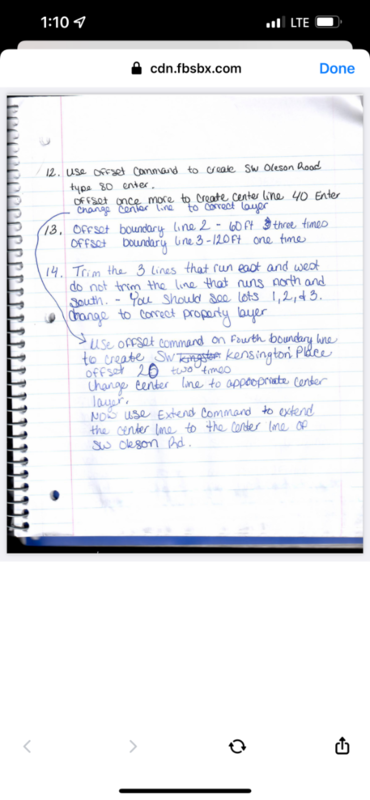 1:10
LTE
cdn.fbsbx.com
Done
12. Use offset Command to create SW Oleson Road
type 80 enter.
offset once more to create center line 40 Enter
change center line to correct layer
13. Offset boundary line 2 - 60 ft three times
Offset boundary line 3 - 120 Ft one time
14. Trim the 3 lines that run east and west
do not trim the line that runs north and
south. - You should see lots 1, 2, & 3.
Change to correct property layer
Use offset command on Fourth boundary line
to create SW Kensington Place
offset 20 two times
Change center line to appropriate center
layer.
Now use Extend Command to extend
the center line to the center line of
SW Oleson Rd.